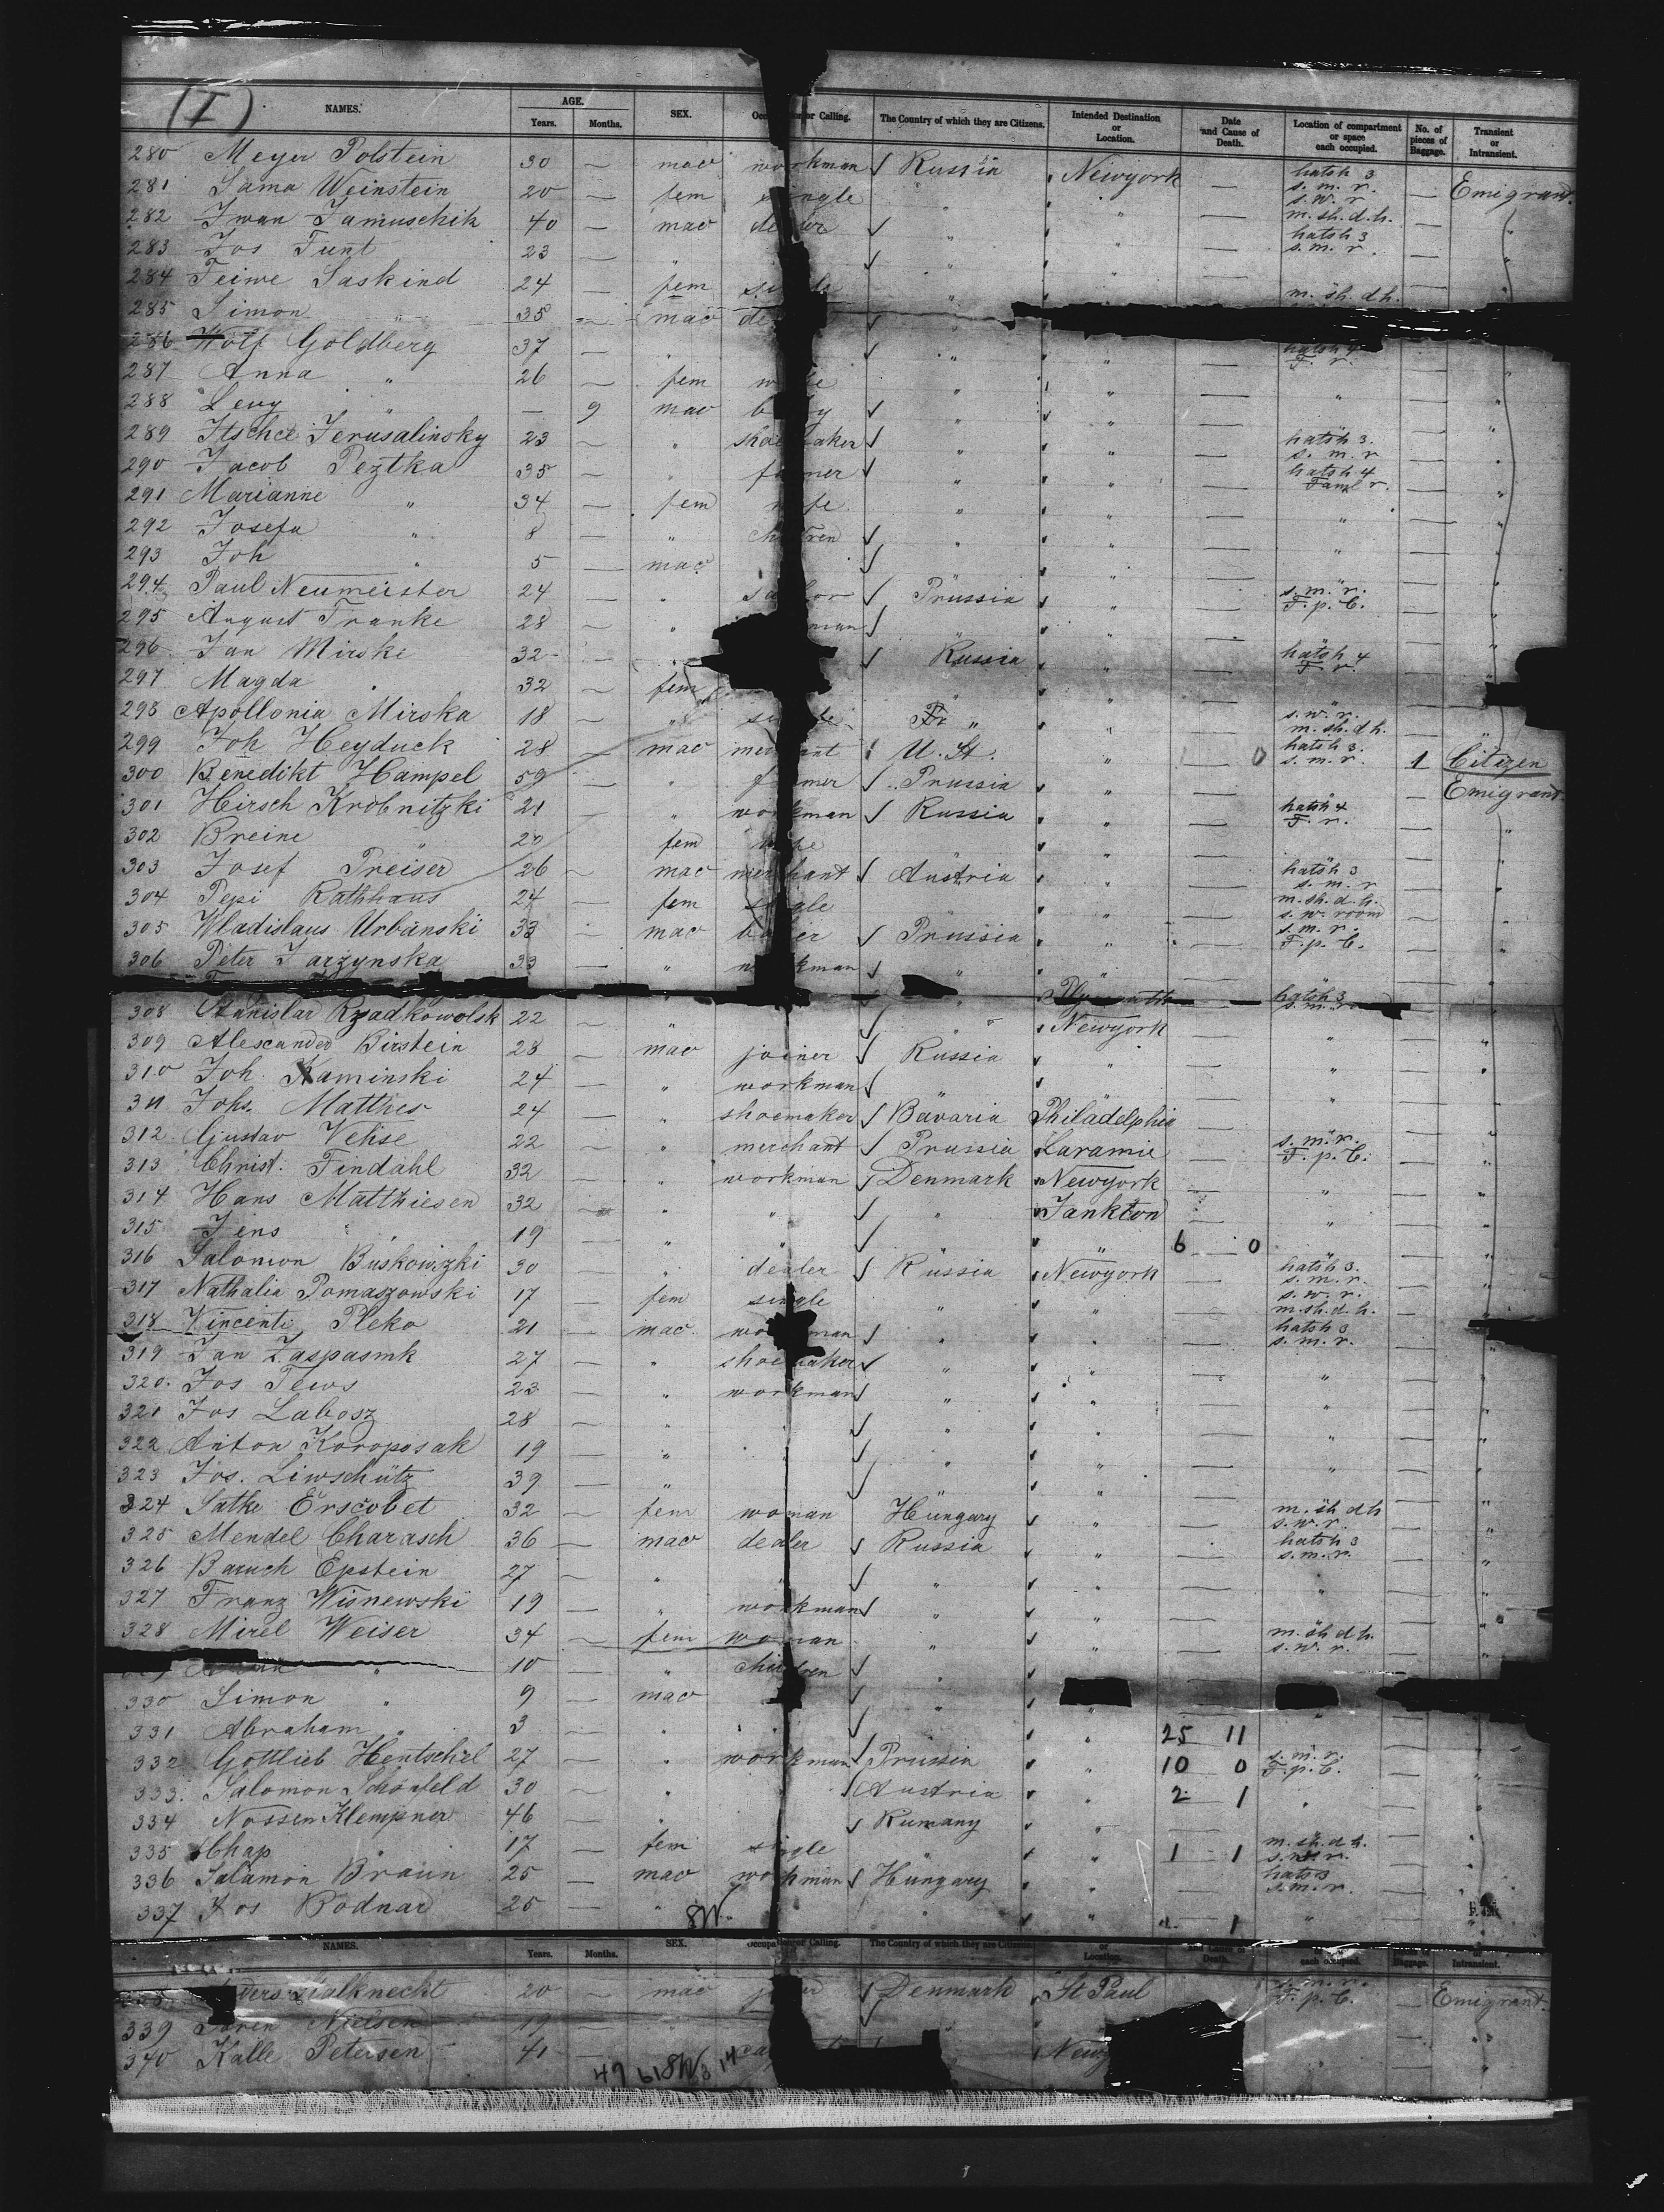 (I)
NAMES. AGE. Years. Months. SEX. Occupation or Calling. The Country of which they are Citizens. Intended Destination or Location. Date and Cause of Death. Location of compartment or space each occupied. No. of pieces of Baggage. Transient or Intransient.
280 Meyer Polstein 30 — mac workman ✓ Russia Newyork — hatsh 3 s. m. r. — Emigrant.
281 Sama Weinstein 20 — fem single " " — s. w. r. m. sh. d. h. — "
282 Iwan Jamuschik 40 — mac dealer ✓ " " — hatsh 3 s. m. r. — "
283 Jos Funt 23 — " ✓ " — —
284 Feiwe Saskind 24 — fem single " m. sh. d h.
285 Simon " 35 — mac ✓
286 Wolf Goldberg 37 — " ✓ " " — hatsh 4 F. r. "
287 Anna " 26 — fem wife " " — " — "
288 Levy " — 9 mac ✓ " " — — "
289 Itschce Jerusalinsky 23 — " shoemaker ✓ " " — hatsh 3. s. m. r — "
290 Jacob Peztka 35 — " farmer ✓ " " — hatsh 4 Faml r. — "
291 Marianne " 34 — fem wife " " — " — "
292 Josefa " 8 — " children ✓ " " — " — "
293 Joh " 5 — mac ✓ " — —
294 Paul Neumeister 24 — " ✓ Prussia " — s. m. r. F. p. C. —
295 August Franke 28 — " ✓ " " — — "
296 Jan Mirski 32 — ✓ Russia " — hatsh 4 F. r. —
297 Magda " 32 — fem " " — "
298 Apollonia Mirska 18 — " single " " — s. w. r. m. sh. d h. — "
299 Joh Heyduck 28 — mac merchant U. St. " 0 hatsh 3. s. m. r. 1 Citizen
300 Benedikt Hampel 59 — " farmer ✓ Prussia " — " — Emigrant
301 Hirsch Krobnitzki 21 — " workman ✓ Russia " — hatsh 4 F. r. — "
302 Breine " fem wife " —
303 Josef Preiser 26 — mac merchant ✓ Austria " — hatsh 3 s. m. r — "
304 Pepi Rathhaus 24 — fem single " — m. sh. d. h. s. w. room — "
305 Wladislaus Urbanski 33 — mac ✓ Prussia " — s. m. r. F. p. C. — "
306 Peter Jarzynska 33 — " workman ✓ " " —
Plymouth — hatsh 3 s. m. r
308 Stanislar Rzadkowolsk 22 — " ✓ " Newyork "
309 Alexander Birstein 28 — mac joiner ✓ Russia " — " — "
310 Joh. Kaminski 24 — " workman ✓ — " — "
311 Johs. Matthes 24 — " shoemaker ✓ Bavaria Philadelphia — " — "
312 Gustav Vehse 22 — " merchant ✓ Prussia Laramie — s. m. r. F. p. C. — "
313 Christ. Findahl 32 — " workman ✓ Denmark Newyork — " — "
314 Hans Matthiesen 32 — " " ✓ " Jankton — " — "
315 Jens " 19 — " " ✓ " " 6 0 " — "
316 Salomon Buskowizki 30 — " dealer ✓ Russia Newyork — hatsh 3. s. m. r. — "
317 Nathalia Pomaszowski 17 — fem single " " — s. w. r. m. sh. d. h. — "
318 Wincenti Pleko 21 — mac workman ✓ " " — hatsh 3 s. m. r. —
319 Jan Zaspasmk 27 — " shoemaker ✓ " " — " — "
320. Jos Tews 23 — " workman ✓ " " — — "
321 Jos Labosz 28 — " ✓ " " — " — "
322 Anton Koroposak 19 — " ✓ " " — " — "
323 Jos. Liwschütz 39 — " ✓ " — — "
324 Satke Erscobet 32 — fem woman Hungary " — m. sh d h s. w. r. — "
325 Mendel Charasch 36 — mac dealer ✓ Russia " — hatsh 3 s. m. r. — "
326 Baruch Epstein 27 — " ✓ " " — " — "
327 Franz Wisnewski 19 — " workman ✓ " " — " — "
328 Mirel Weiser 34 — fem woman " " — m. sh d h. s. w. r. — "
" 10 — " children ✓ "
330 Simon " 9 — mac ✓ " " —
331 Abraham " 3 — " ✓ " 25 11 " — "
332 Gottlieb Hentschel 27 — " workman ✓ Prussia " 10 0 s. m. r. F. p. C. — "
333. Salomon Schönfeld 30 — " ✓ Austria " 2 1 " — "
334 Nossen Klempner 46 — " ✓ Rumany " — "
335 Chap 17 — fem single " 1 1 m. sh. d. h. s. w. r. — "
336 Salamon Braun 25 — mac workman ✓ Hungary " — hats 3 s. m. r. — "
337 Jos Bodnar 25 — " " " 1 " — "
NAMES. Years. Months. SEX. Occupation or Calling. The Country of which they are Citizens. or Location. and Cause of Death. each occupied. Baggage. Intransient.
20 — mac ✓ Denmark St Paul s. m. r. F. p. C. — Emigrant.
339 Sören Nielsen 19 — ✓ — "
340 Kalle Petersen 41 —